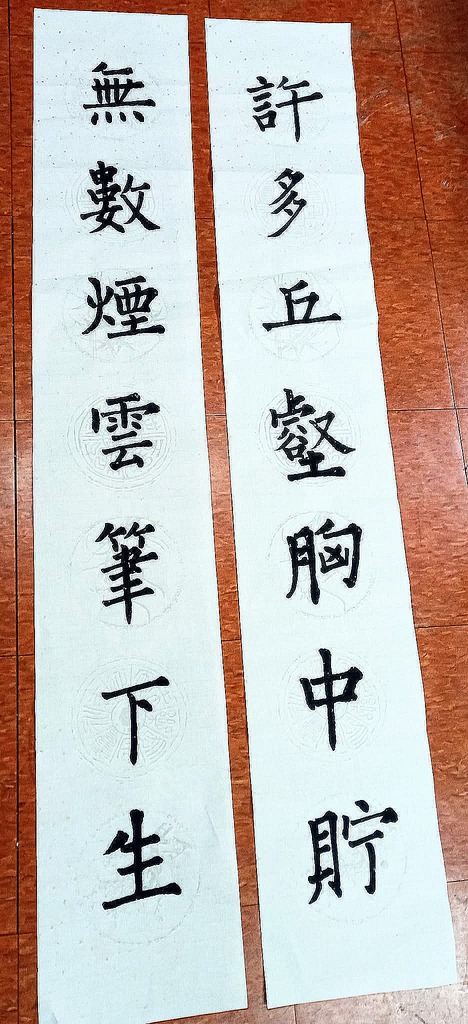 許多丘壑胸中貯
無數煙雲筆下生